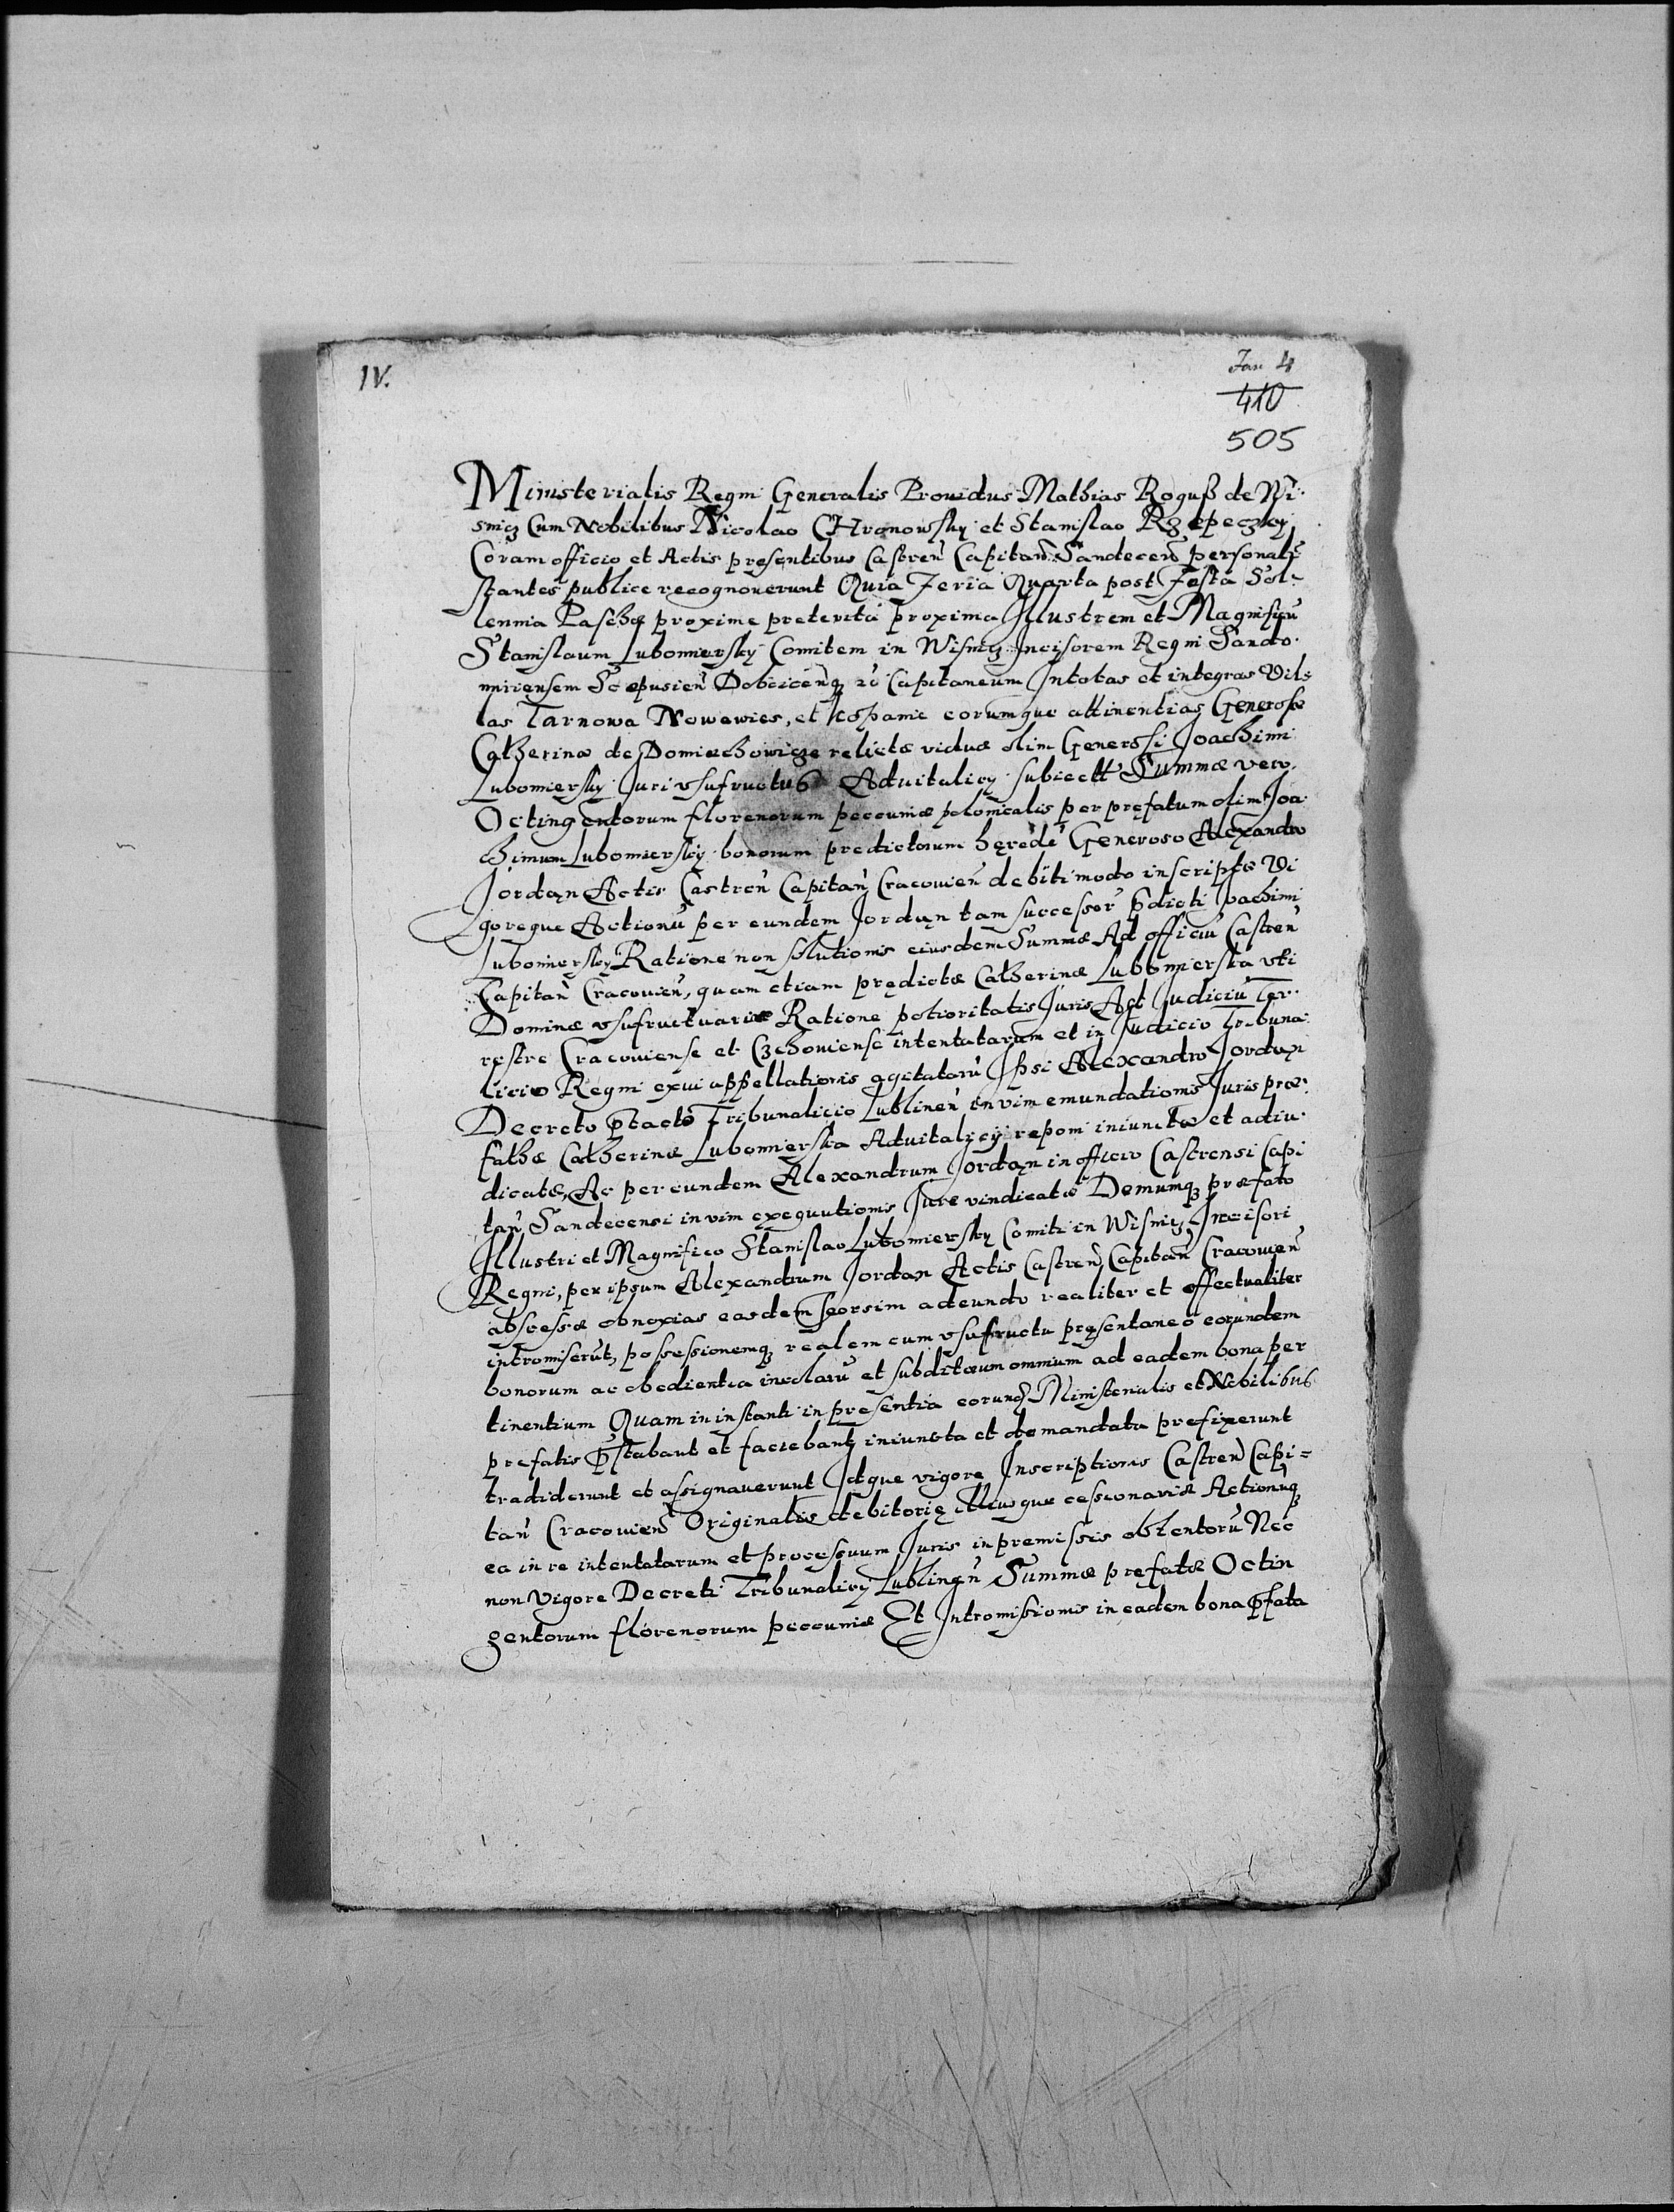 IV.
Jan 4
410
505
Ministerialis Regni Generalis Prouidus Mathias Roguß de Wi
snicz Cum Nobilibus Nicolao CHronowsky et Stanislao Rzepeczky
Coram officio et Actis presentibus Castreñ Capitañ Sandeceñ personalr
stantes publice recognouerunt Quia Feria Quarta post Festa Sol-
lennia Paschæ proxime preterita proxima Illustrem et Magnificũ
Stanislaum Lubomiersky Comitem in Wisnicz Incisorem Regni Sando
miriensem Scepusieñ Dobcicenq zc Capitaneum In totas et integras Vil-
las Tarnowa Nowawies, et Kospanie eorumque attinentias Generosæ
Catherinæ de Domiechowicze relictæ viduæ olim Generosi Joachimi
Lubomiersky Juri vsufructus Aduitalicy subiectt Summæ vero
Octingentorum florenorum peccuniæ polonicalis per prefatum olim Joa
chimum Lubomiersky bonorum predictorum herede Generoso Alexandro
Jordan Actis Castreñ Capitañ Cracouieñ debiti modo inscriptæ Vi
goreque Actionũ per eundem Jordan tam successor pdicti Joachimi
Lubomiersky Ratione non solutionis eiusdem Summæ Ad officiũ Castreñ
Capitañ Cracouieñ, quam etiam prędictæ Catherinæ Lubomierska vti
Dominæ vsufructuariæ Ratione potioritatis Juris Ad Judiciũ Ter
restre Cracouiense et Czchouiense intentataram et in Judicio Tribuna
licio Regni exui appellationis agitatarũ Ipsi Alexandro Jordan
Decreto ptacto Tribunalicio Lublineñ in vim emundationis Juris præ
fathæ Catherinæ Lubomierska Aduitalicij reponi iniunctæ et adiu
dicatæ, Ac per eundem Alexandrum Jordan in officio Castrensi Capi
tañ Sandecensi in vim exequutionis Jure vindicatæ Demumq præfato
Illustri et Magnifico Stanislao Lubomiersky Comiti in Wisnicz Incisori
Regni, per ipsum Alexandrum Jordan Actis Castreñ Capitañ Cracouieñ
abscessæ obnoxias easdem seorsim adeundo realiter et effectualiter
intromiserũt, possessionemq realem cum vsufructu presentaneo eorundem
bonorum ac obedientia incolarũ et subditorum omnium ad eadem bona per
tinentium Quam in instanti in presentia eorunq Ministerialis et Nobilibus
prefatis pstabant et faciebant iniuncta et demandata prefixerunt
tradiderunt et assignauerunt Idque vigore Inscriptionis Castreñ Capi=
tañ Cracouieñ Originalis debitorię illiusque cessionariæ Actionuq
ea in re intentatarum et processuum Juris in premissis obtentorũ Nec
non Vigore Decreti Tribunalicy Lublineñ Summæ prefatæ Octin
gentorum florenorum peccuniæ Et Intromissionis in eadem bona pfata